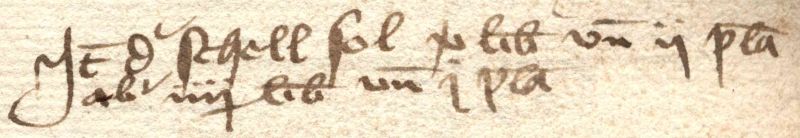 It d schell sol xo lib vn ij pla
ab iiij lib vn j pla